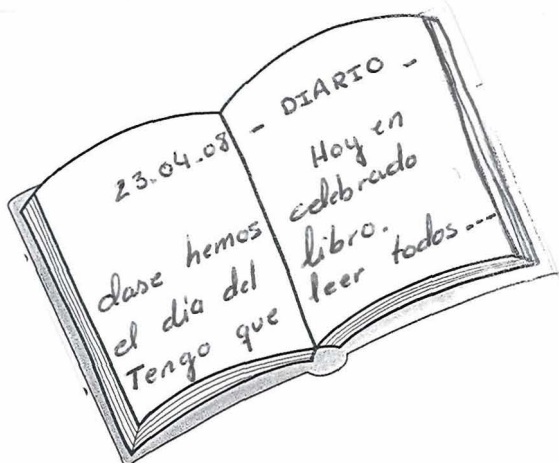 23.04.08 - DIARIO -
Hoy en
clase hemos celebrado
el dia del libro.
Tengo que leer todos ---